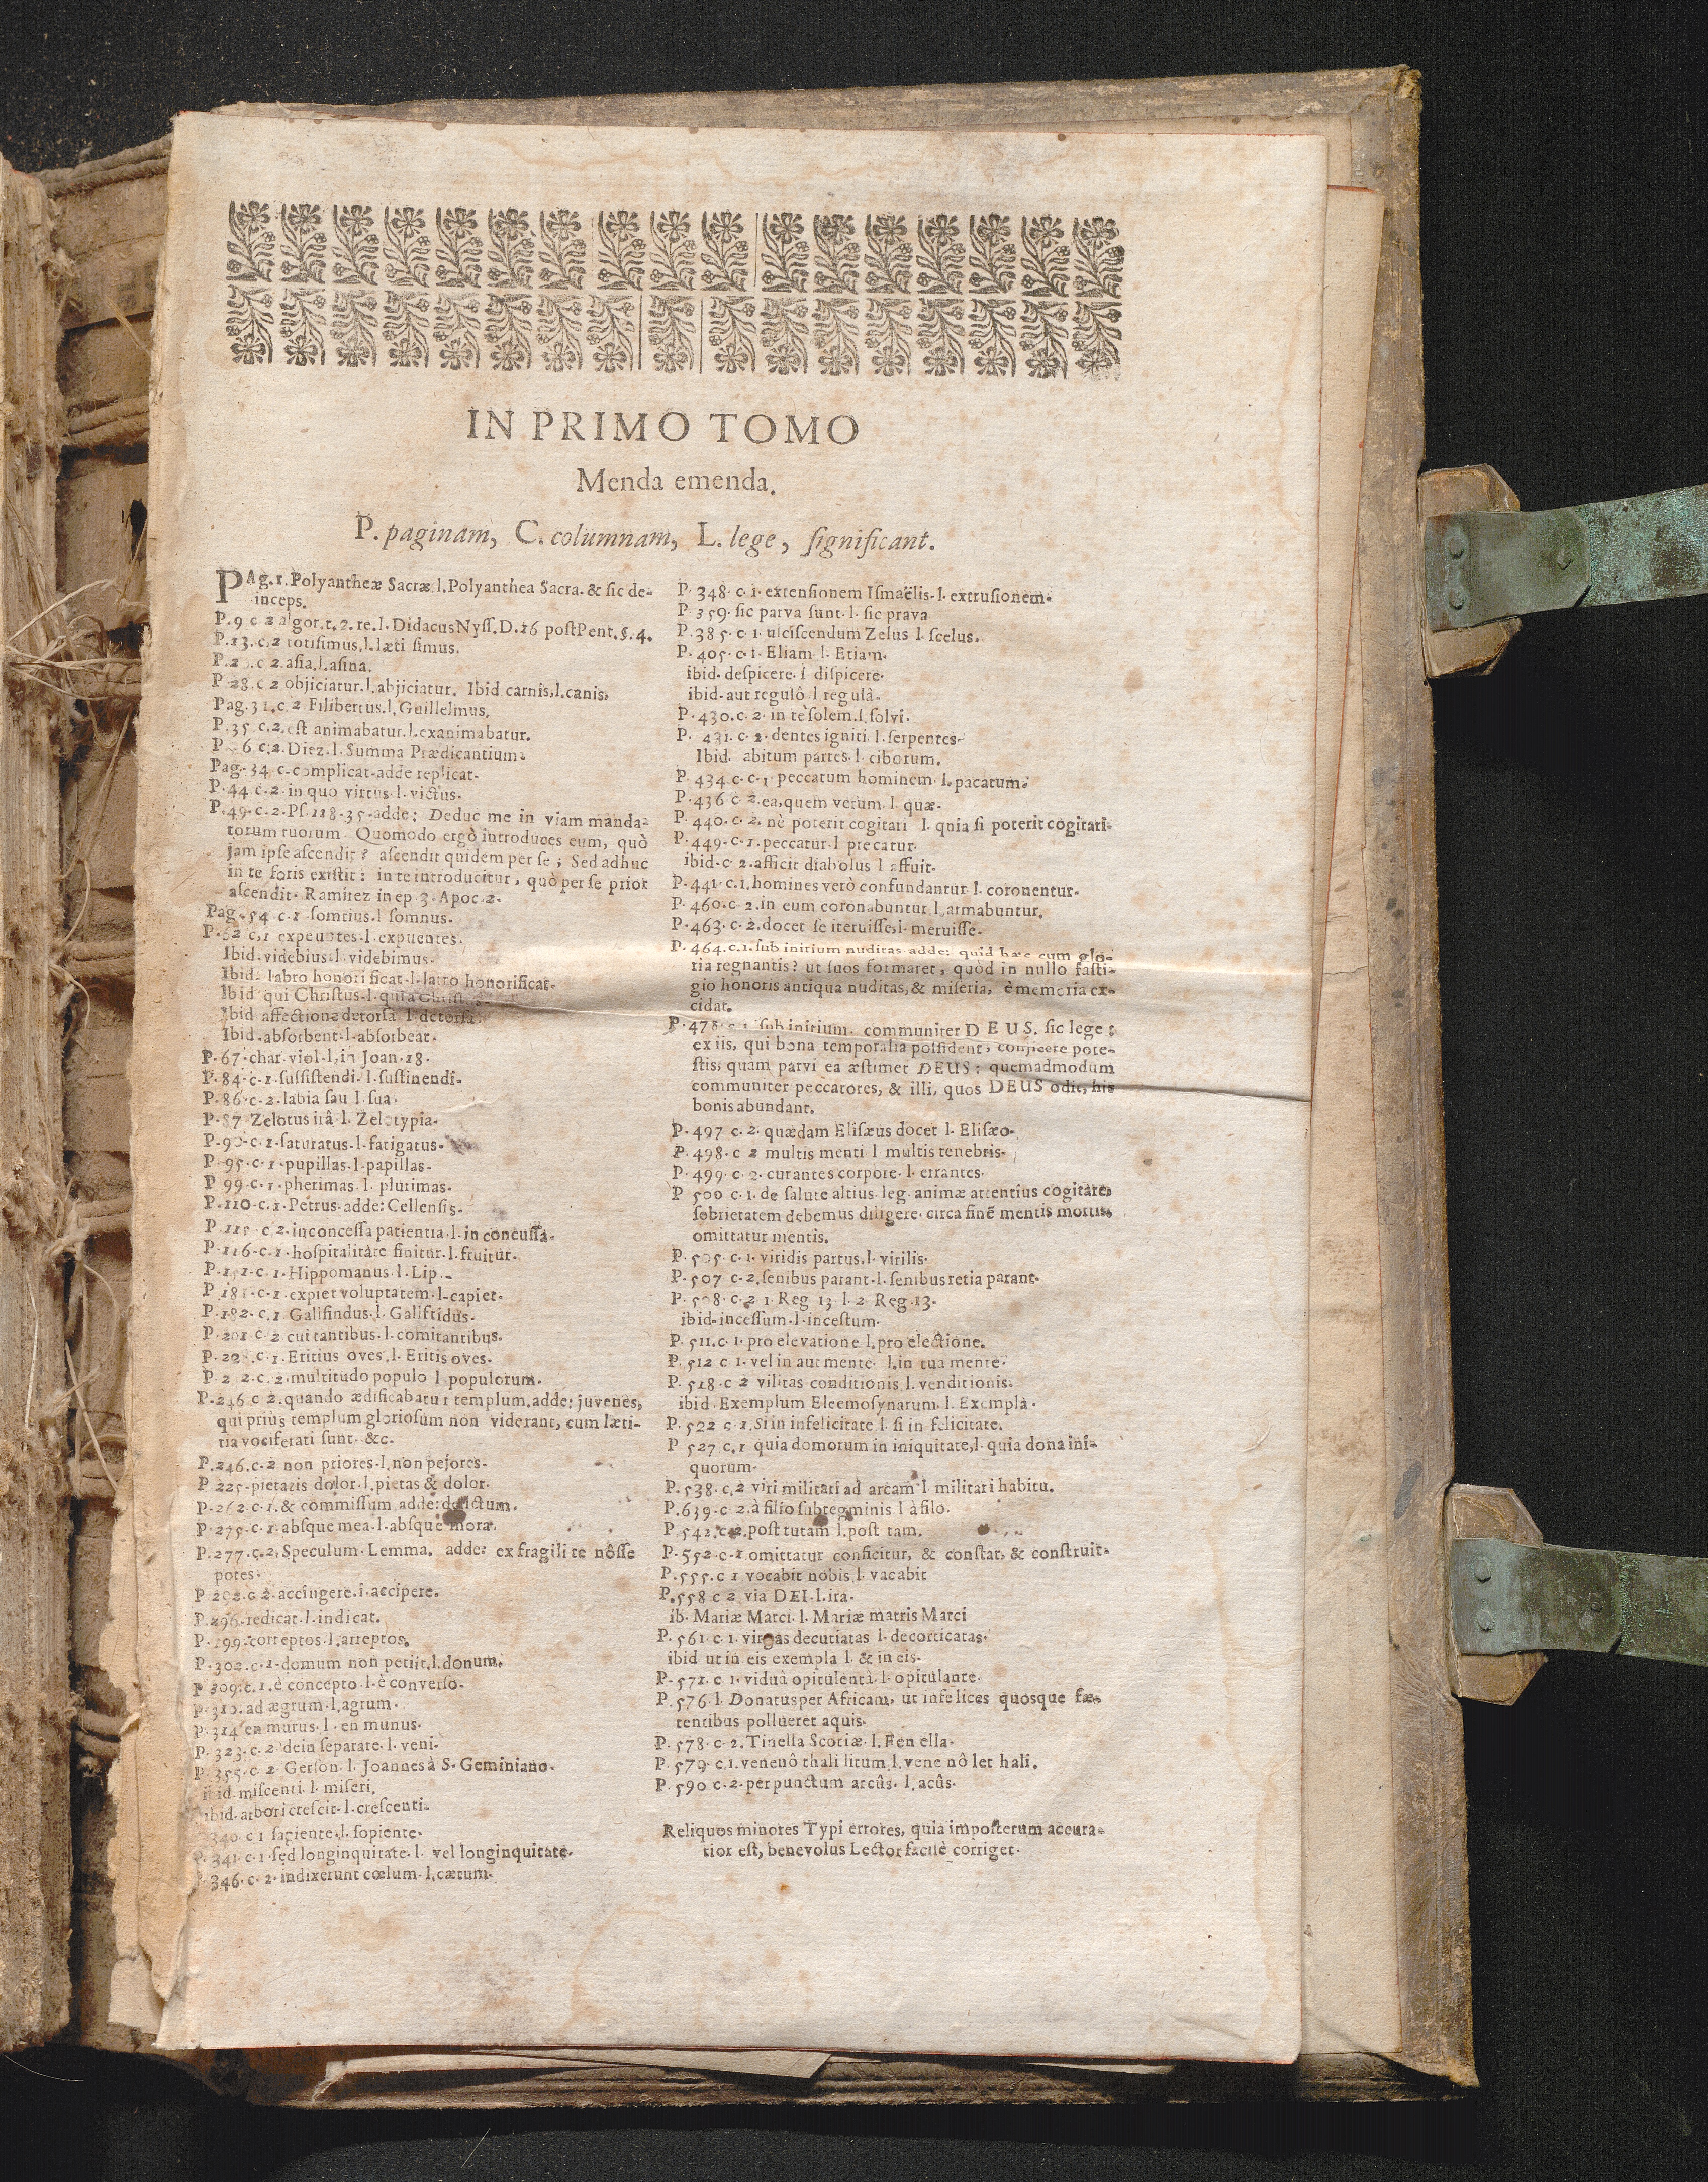 IN PRIMO TOMO
Menda emenda.
P. paginam, C. columnam, L. lege, ſignificant.
PAg. 1. Polyantheæ Sacræ. l. Polyanthea Sacra. & ſic de-
inceps.
P. 9 c 2 algor. t. 2. re. l. Didacus Nyſſ. D. 16 poſt Pent. §. 4.
P. 13. c. 2 totiſimus. l. læti ſimus.
c 2. aſia. l. aſina.
P. 28. c 2 objiciatur. l. abjiciatur. Ibid carnis, l. canis,
Pag. 31. c. 2 Filibertus. l. Guillelmus.
P. 35 c. 2. eſt animabatur. l. exanimabatur.
c. 2. Diez. l. Summa Prædicantium.
Pag. 34 c. complicat. adde replicat.
P. 44 c. 2. in quo virtus. l. victus.
P. 49. c. 2. Pſ. 118. 35. adde: Deduc me in viam manda-
torum tuorum. Quomodo ergò introduces eum, quò
jam ipſe aſcendit? aſcendit quidem per ſe; Sed adhuc
in te foris exiſtit: in te introducitur, quò per ſe prior
aſcendit. Ramirez in ep. 3. Apoc. 2.
Pag. 54 c. 1 ſomtius. l ſomnus.
P. 62 c, 1 expeuntes. l. expuentes.
Ibid. videbius. l. videbimus.
Ibid. labro honori ficat. l. latro honorificat.
Ibid qui Chriſtus. l. quia
Ibid affectione detorſa. l. detorſâ.
Ibid. abſorbent. l. abſorbeat.
P. 67. char. viol. l. in Joan. 18.
P. 84. c. 1. ſuſſiſtendi. l. ſuſtinendi.
P. 86. c. 2. labia ſau l. ſua.
P. 87 Zelotus itâ. l. Zelotypia.
P. 90. c. 1. ſaturatus. l. fatigatus.
P. 95. c. 1. pupillas. l. papillas.
P 99. c. 1. pherimas. l. plurimas.
P. 110. c. 1. Petrus. adde: Cellenſis.
P. 115. c 2. inconceſſa patientia. l. in concuſſa.
P. 116. c. 1. hoſpitalitate finitur. l. fruitur.
P. 151. c. 1. Hippomanus. l. Lip.
P. 181. c. 1. expiet voluptatem. l. capiet.
P. 182. c. 1 Gallfindus. l. Gallftidus.
P. 201 c. 2 cui tantibus. l. comitantibus.
c. 1. Eritius oves. l. Eritis oves.
c. 2. multitudo populo l. populorum.
P. 246 c 2. quando ædificabatur templum. adde: juvenes,
qui priùs templum glorioſum non viderant, cum læti-
tia vociferati ſunt. &c.
P. 246. c. 2 non priores. l. non pejores.
P 225. pietatis dolor. l. pietas & dolor.
P. 262. c. 1. & commiſſum adde: delictum.
P. 275. c. 1. abſque mea. l. abſque mora.
P. 277. c. 2. Speculum. Lemma. adde: ex fragili te nôſſe
potes.
P 292. c. 2. accingere. i. accipere.
P. 296. redicat. l. indicat.
P. 299. correptos. l. arreptos.
P. 302. c. 1. domum non petiit. l. donum.
P 309. c. 1. è concepto. l. è converſo.
P. 310. ad ægrum. l. agrum.
P. 314 en murus. l. en munus.
P. 323. c. 2. dein ſeparate. l. veni.
P. 355. c. 2 Gerſon. l. Joannes à S. Geminiano.
ibid. miſcenti. l. miſeri.
ibid. arbori creſcit. l. creſcenti.
340. c 1 ſatiente. l. ſopiente.
P. 341. c. 1. ſed longinquitate. l. vel longinquitate.
P. 346. c. 2. indixerunt cœlum. l. cætum.
P. 348. c. 1. extenſionem Iſmaëlis. l. extruſionem.
P. 359. ſic parva ſunt. l. ſic prava
P. 385. c. 1. ulciſcendum Zelus l. ſcelus.
P. 405. c. 1. Eliam. l. Etiam.
ibid. deſpicere. l diſpicere.
ibid. aut regulô. l regulâ.
P. 430. c. 2. in te ſolem. l. ſolvi.
P. 431. c. 2. dentes igniti. l. ſerpentes.
Ibid. abitum partes. l. ciborum.
P. 434 c. c. 1. peccatum hominem. l. pacatum.
P. 436 c. 2. ea, quem verum. l. quæ.
P. 440. c. 2. nè poterit cogitari l. quia ſi poterit cogitari.
P. 449. c. 1. peccatur. l precatur.
ibid. c 2. afficit diabolus l affuit.
P. 441. c. 1. homines verò confundantur. l. coronentur.
P. 460. c. 2. in eum coronabuntur l. armabuntur.
P. 463. c. 2. docet ſe iteruiſſe. l. meruiſſe.
P. 464. c. 1. ſub initium nuditas adde: quid hæc cum glo-
ria regnantis? ut ſuos formaret, quòd in nullo faſti-
gio honoris antiqua nuditas, & miſeria, è memoria ex-
cidat.
P. 478. c. 1. ſub initium. communiter DEUS. ſic lege:
ex iis, qui bona temporalia poſſident, conjicere pote-
ſtis, quàm parvi ea æſtimet DEUS: quemadmodum
communiter peccatores, & illi, quos DEUS odit, his
bonis abundant.
P. 497 c. 2. quædam Eliſæus docet l. Eliſæo.
P. 498. c 2 multis menti l multis tenebris.
P. 499. c. 2. curantes corpore. l. errantes.
P 500 c. 1. de ſalute altius. leg. animæ attentius cogitare,
ſobrietatem debemus diligere. circa finẽ mentis mortis,
omittatur mentis.
P. 505. c. 1. viridis partus. l. virilis.
P. 507 c. 2. ſenibus parant. l. ſenibus retia parant.
P. 508. c. 2 1 Reg 13 l. 2. Reg. 13.
ibid. inceſſum. l. inceſtum.
P. 511. c. 1. pro elevatione l. pro electione.
P. 512 c 1. vel in aut mente. l. in tua mente.
P. 518. c 2 vilitas conditionis l. venditionis.
ibid. Exemplum Eleemoſynarum. l. Exempla.
P. 522 c. 1. Si in infelicitate l. ſi in felicitate.
P 527 c. 1 quia domorum in iniquitate, l. quia dona ini-
quorum.
P. 538. c. 2 viri militari ad arcam l. militari habitu.
P. 639. c 2. à filio ſubtegminis l à filo.
P. 542. c. 2. poſt tutam l. poſt tam.
P. 552. c. 1 omittatur conficitur, & conſtat, & conſtruit.
P. 555. c 1 vocabit nobis l. vacabit
P. 558 c 2 via DEI. l. ira.
ib. Mariæ Marci. l. Mariæ matris Marci
P. 561. c. 1. virgas decutiatas l. decorticatas.
ibid ut in eis exempla l. & in eis.
P. 571. c 1. viduâ opitulentâ. l. opitulante.
P. 576. l. Donatus per Africam, ut infelices quosque fæ-
tentibus pollueret aquis.
P. 578. c. 2. Tinella Scotiæ. l. Fen ella.
P. 579. c. 1. venenô thali litum l. vene nô let hali.
P. 590 c. 2. per punctum arcûs. l. acûs.
Reliquos minores Typi errores, quia impoſterum accura-
tior eſt, benevolus Lector facilè corriget.